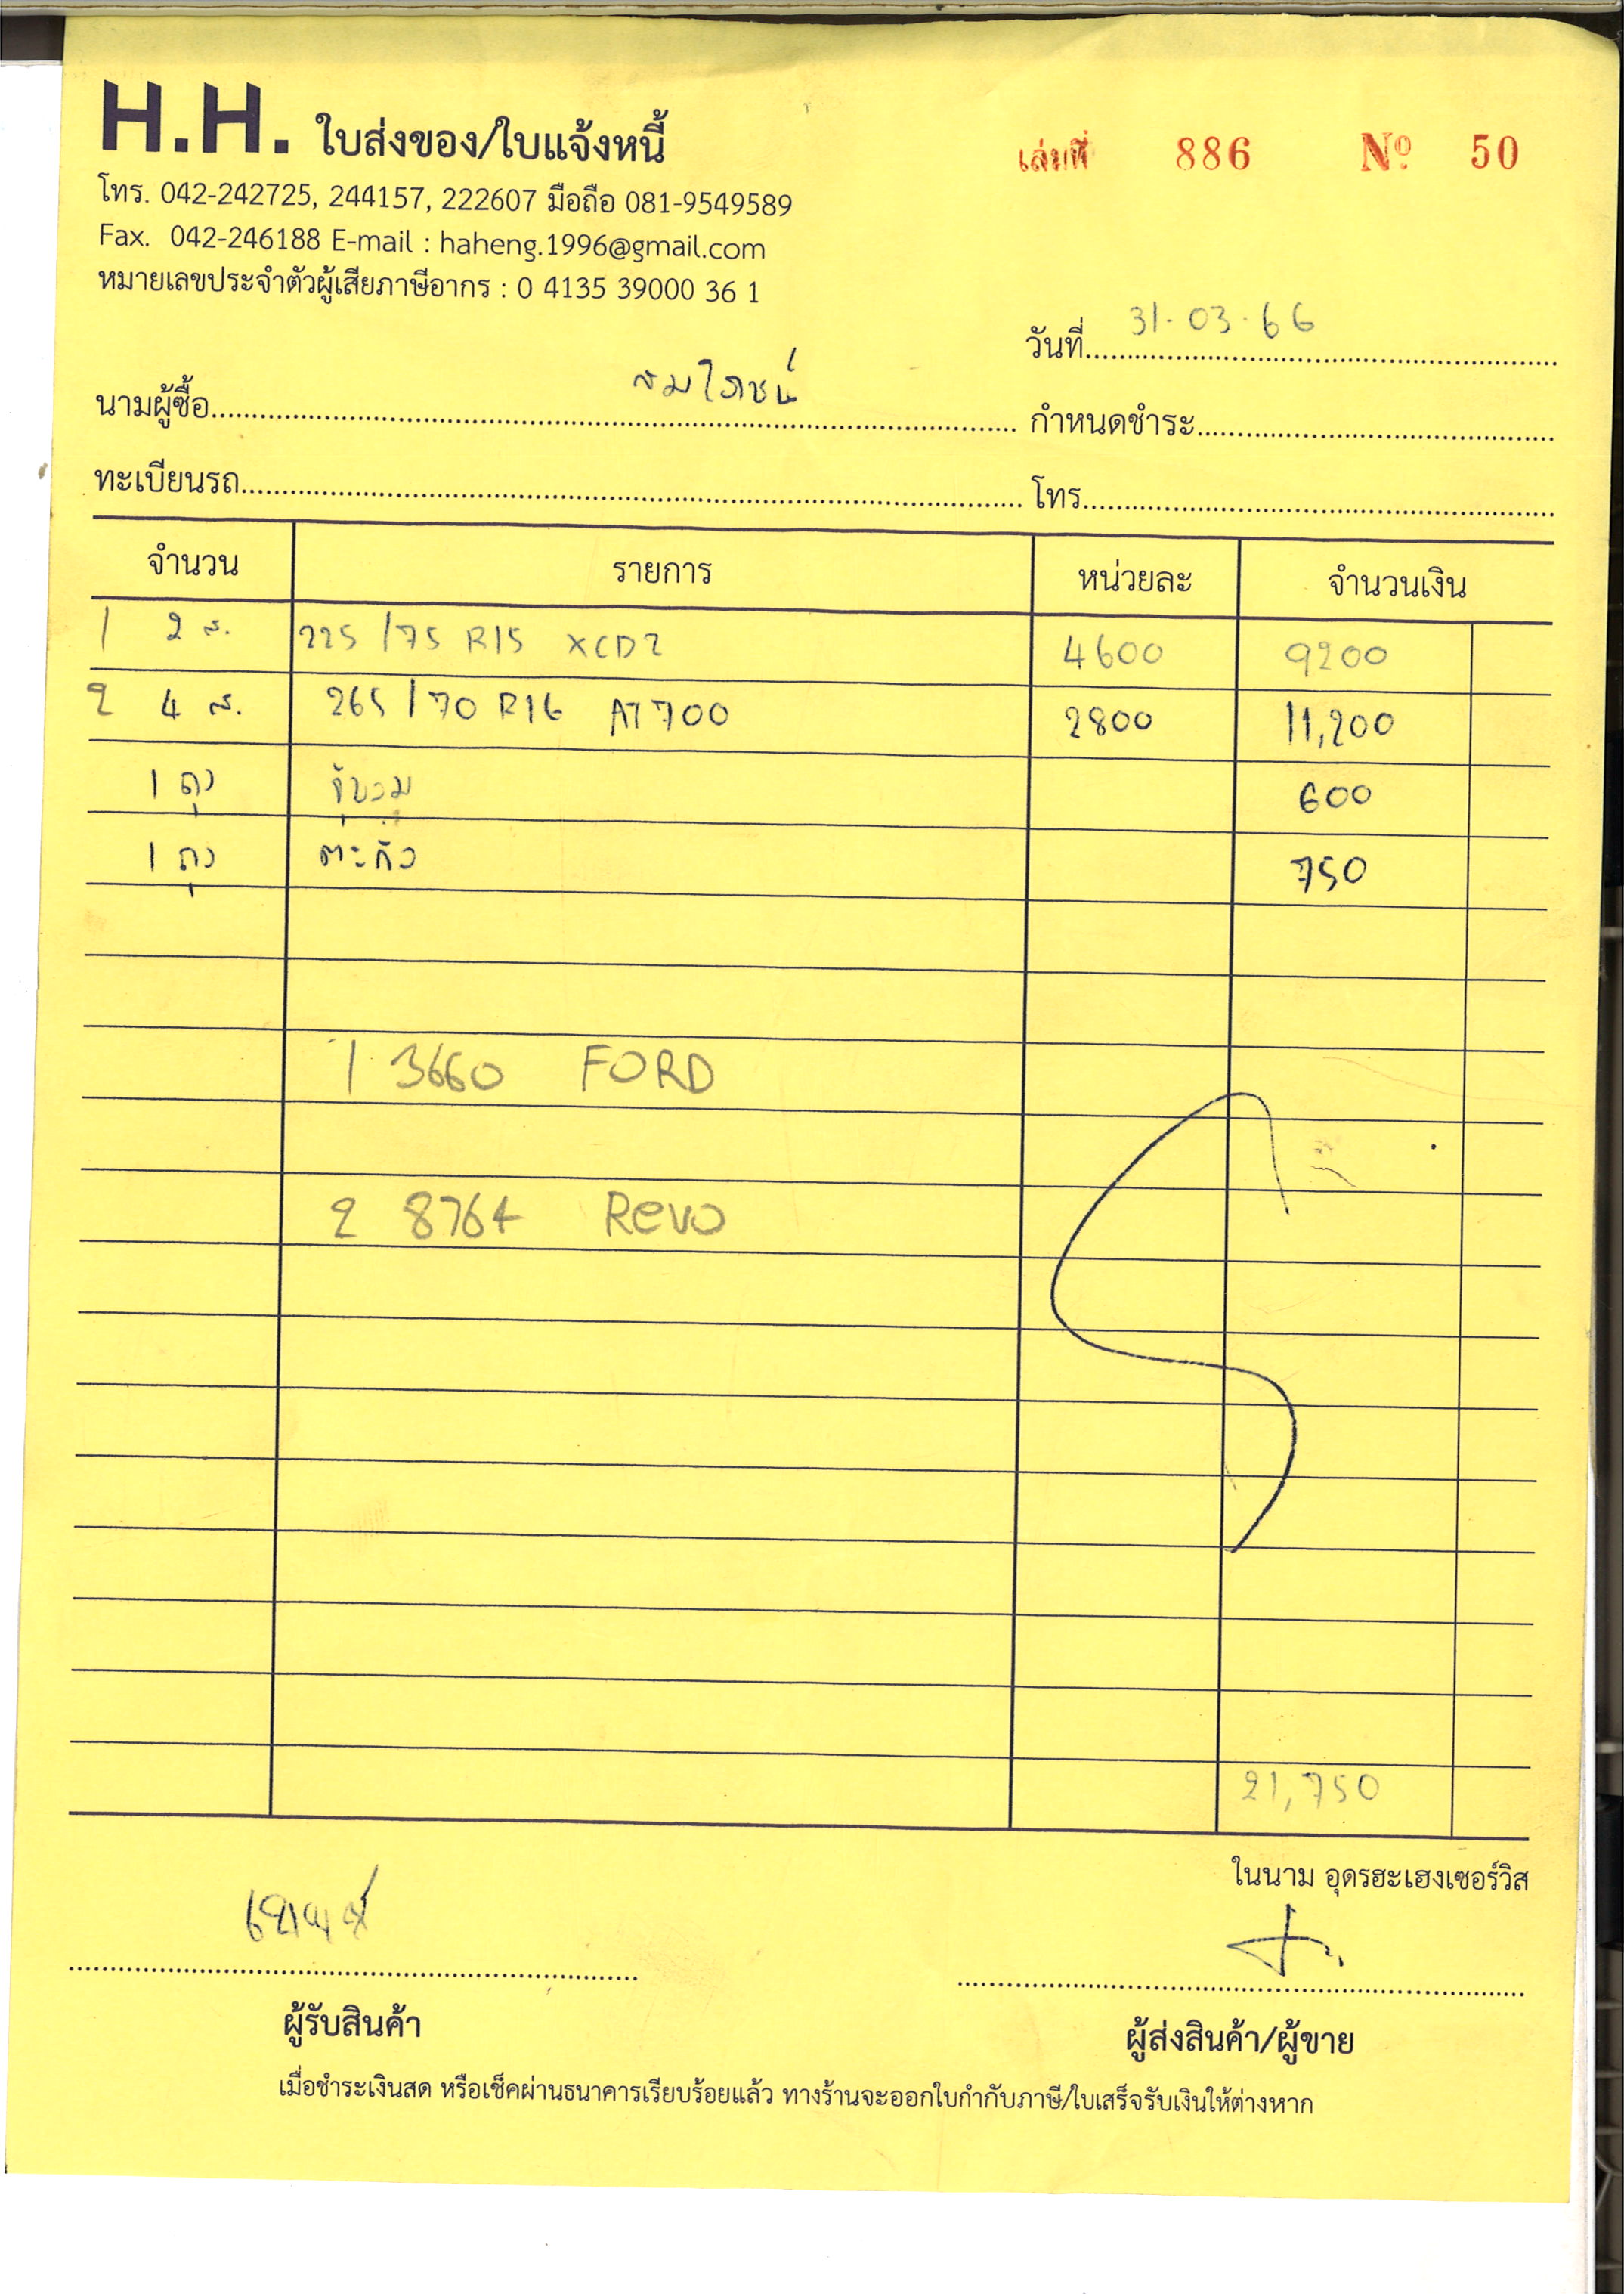 H.H. ใบส่งของ/ใบแจ้งหนี้
เล่มที่ 886 Nº 50
โทร. 042-242725, 244157, 222607 มือถือ 081-9549589
Fax. 042-246188 E-mail : haheng.1996@gmail.com
หมายเลขประจำตัวผู้เสียภาษีอากร : 0 4135 39000 36 1
วันที่ 31-03-66
นามผู้ซื้อ สมโภชน์ กำหนดชำระ
ทะเบียนรถ โทร.
จำนวน รายการ หน่วยละ จำนวนเงิน
1 2 ส. 225/75 R15 XCD2 4600 9200
2 4 ส. 265/70 R16 AT700 2800 11,200
1 ถุง 600
1 ถุง ตะกั่ว 750
1 3660 FORD
2 8764 Revo
21,750
ในนาม อุดรฮะเฮงเซอร์วิส
ผู้รับสินค้า
ผู้ส่งสินค้า/ผู้ขาย
เมื่อชำระเงินสด หรือเช็คผ่านธนาคารเรียบร้อยแล้ว ทางร้านจะออกใบกำกับภาษี/ใบเสร็จรับเงินให้ต่างหาก